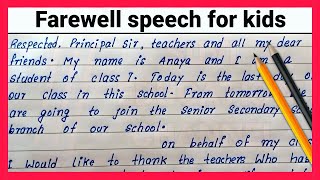 Farewell speech for kids
Respected, Principal Sir, teachers and all my dear
friends. My name is Anaya and I am a
student of class 7. Today is the last da of
our class in this school. From tomorrow we
are going to join the Senior Secondary s
branch of our school.
on behalf of my clas
I would like to thank the teachers who hav